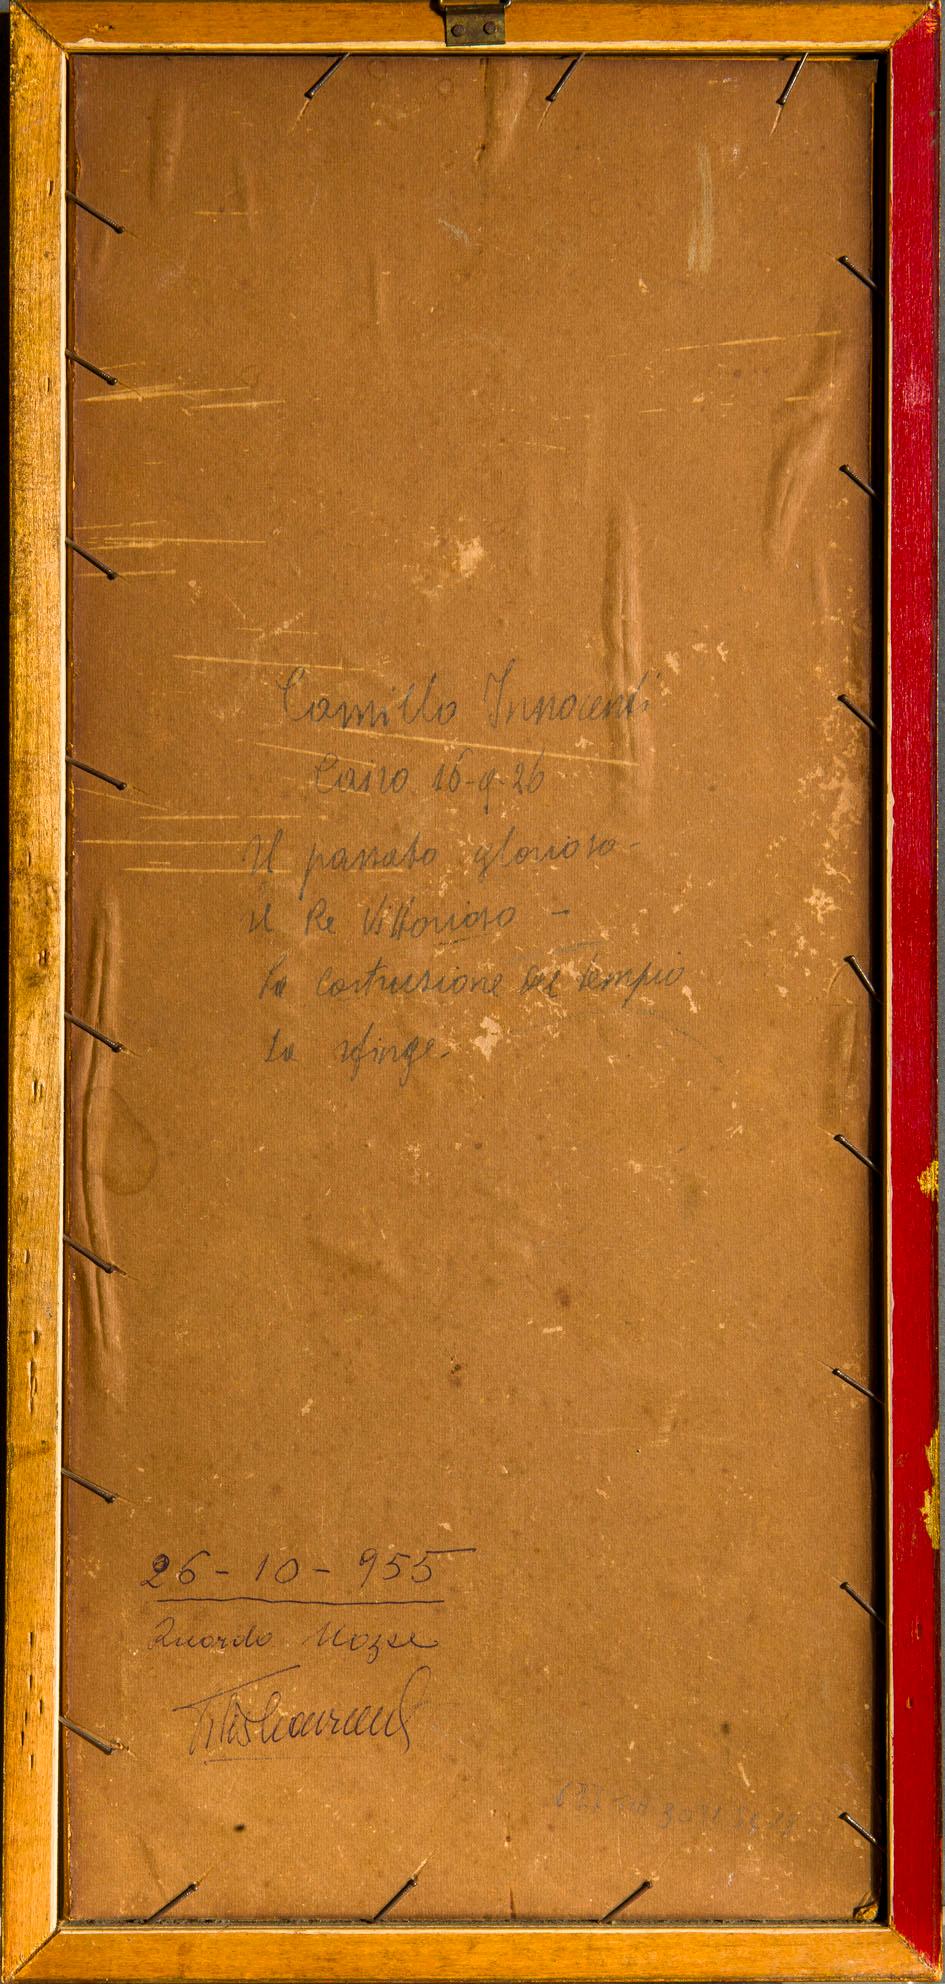 Camillo Innocenti
Cairo 16-9-26
Il passato glorioso-
il Re Vittorioso -
La costruzione del tempio
La sfinge-
26-10-955
Ricordo Nozze